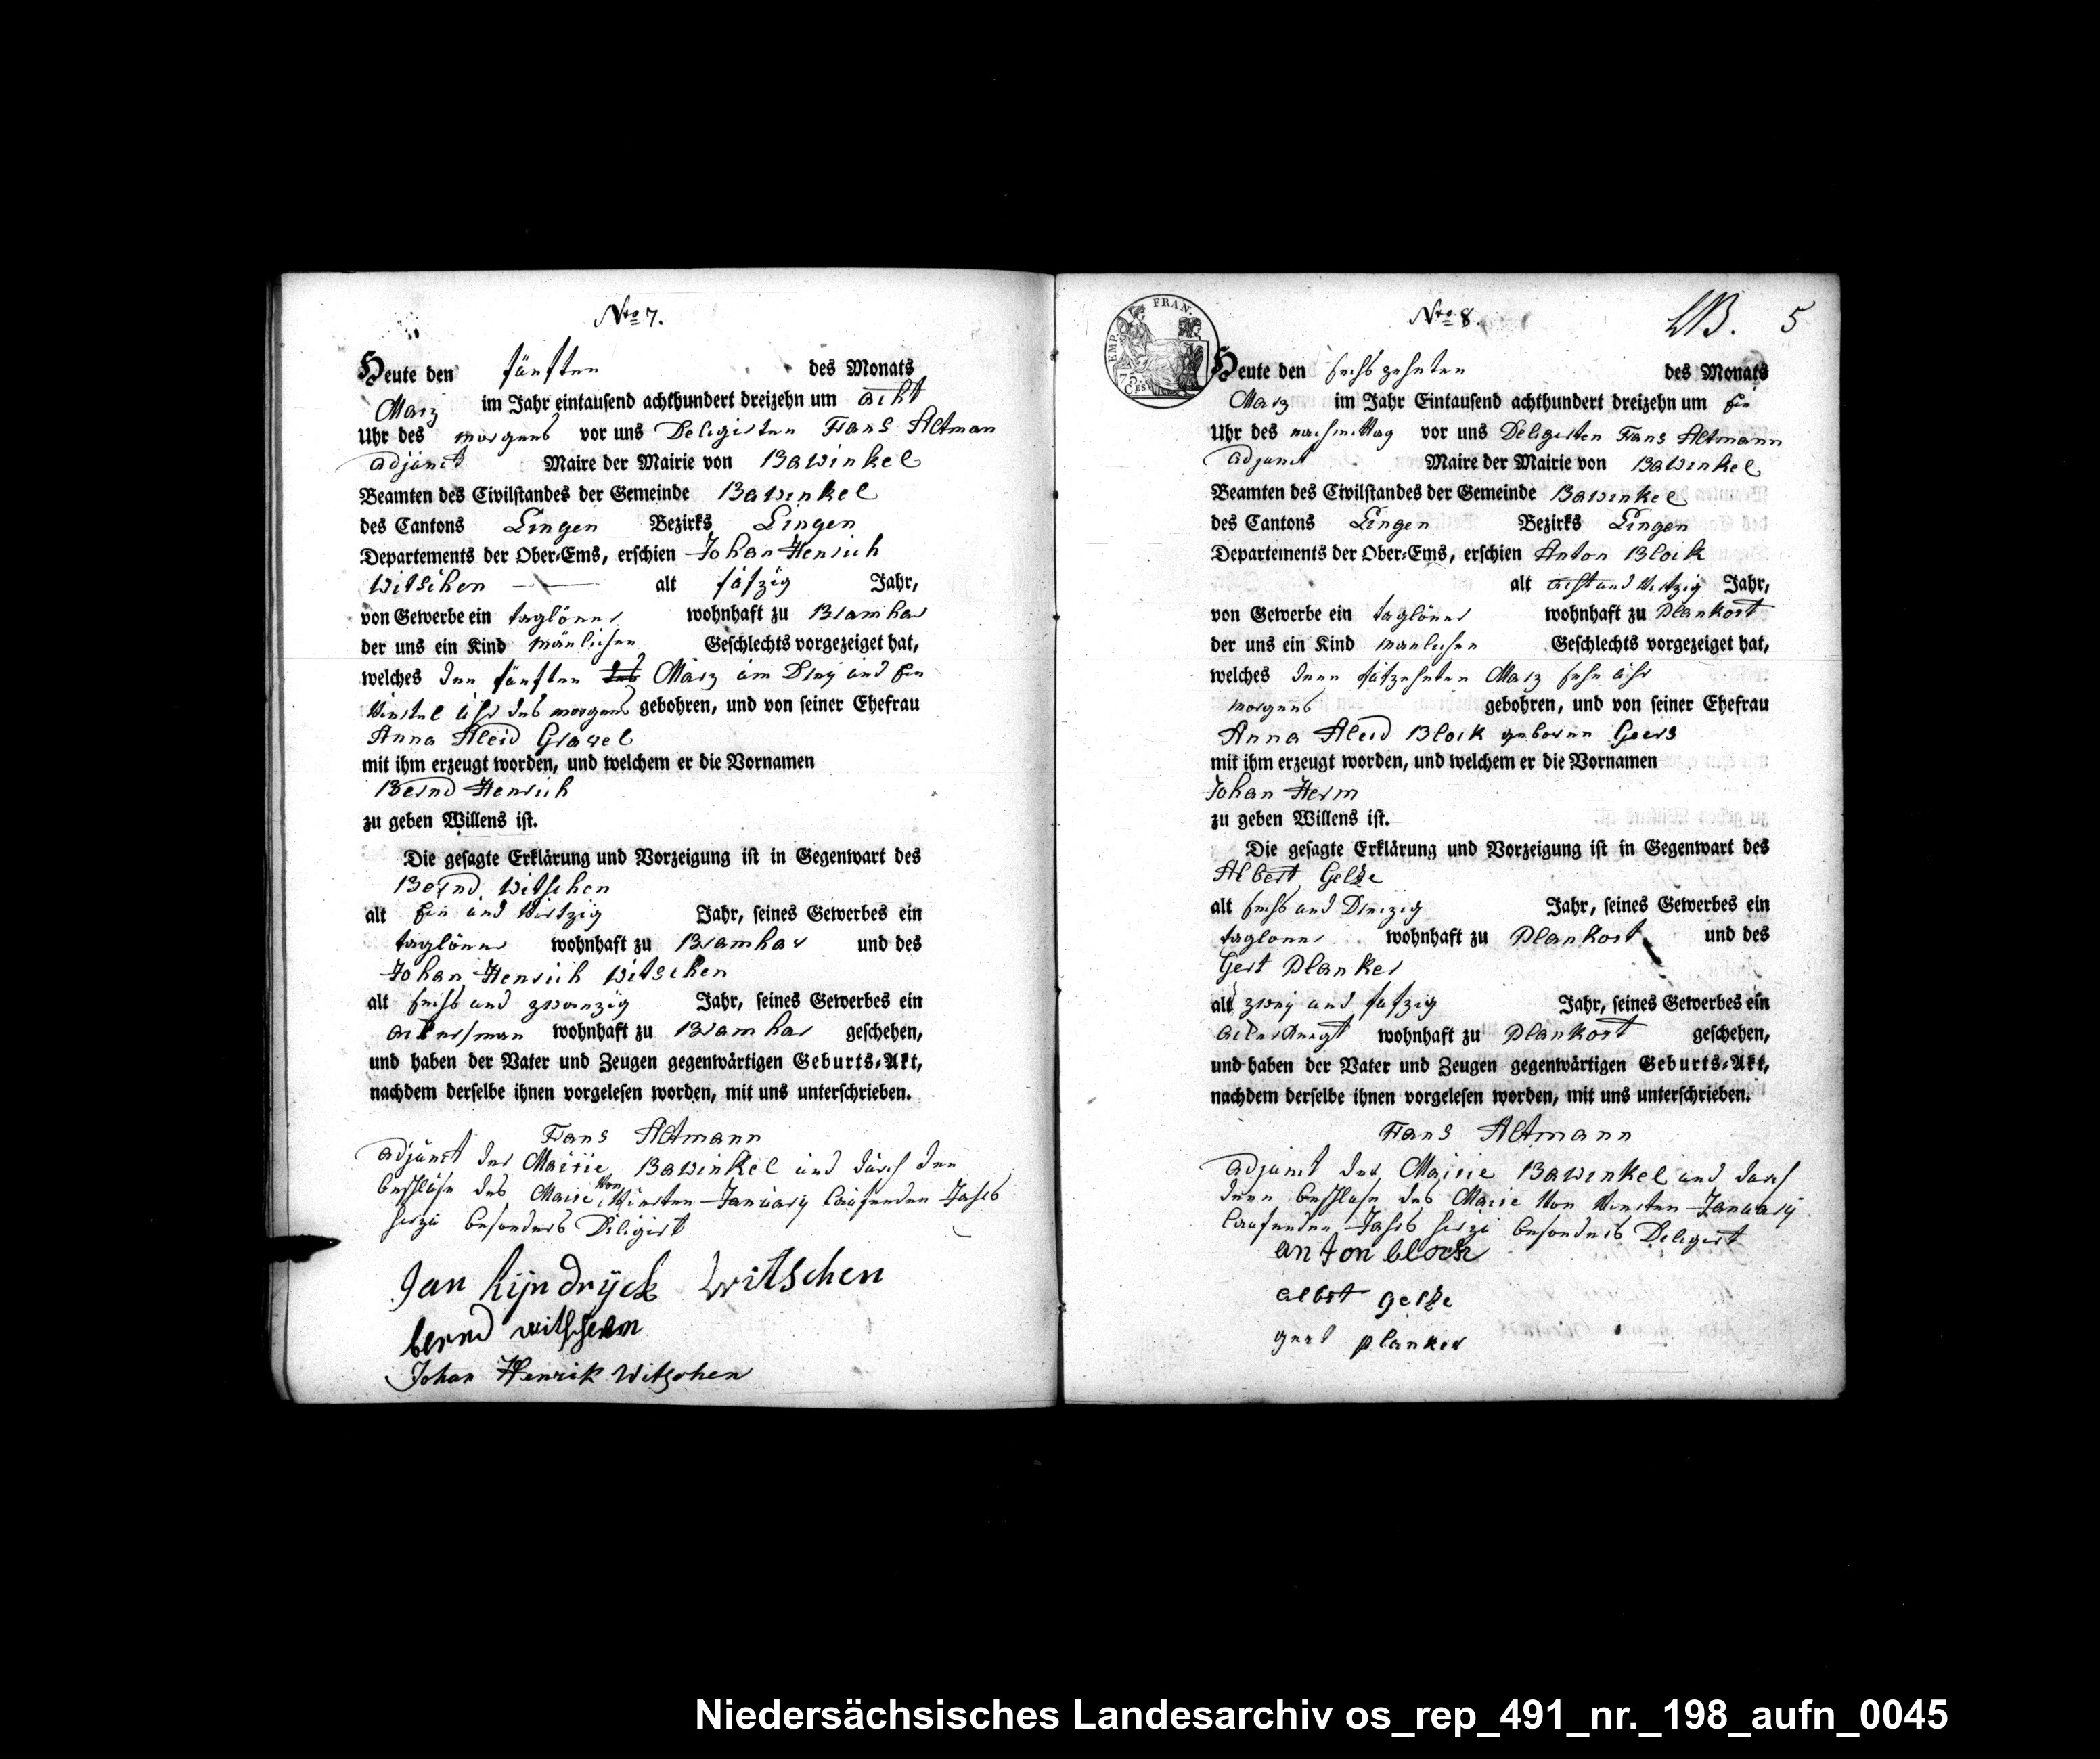 Nro 7.
Heute den fünften des Monats
Marz im Jahr eintausend achthundert dreizehn um acht
Uhr des morgens vor uns Deligirten Frans Altman
adjunct Maire der Mairie von Bawinkel
Beamten des Civilstandes der Gemeinde Bawinkel
des Cantons Lingen Bezirks Lingen
Departements der Ober-Ems, erschien Johan Henrich
Witschen alt fufzig Jahr,
von Gewerbe ein taglöner wohnhaft zu Bramhar
der uns ein Kind mänlichen Geschlechts vorgezeiget hat,
welches den fünften des Marz um Drey und Ein
Viertel uhr des morgens gebohren, und von seiner Ehefrau
Anna Aleid Gravel
mit ihm erzeugt worden, und welchem er die Vornamen
Bernd Henrich
zu geben Willens ist.
Die gesagte Erklärung und Vorzeigung ist in Gegenwart des
Bernd Witschen
alt Ein und Virtzig Jahr, seines Gewerbes ein
taglöner wohnhaft zu Bramhar und des
Johan Henrich Witschen
alt sechs und zwanzig Jahr, seines Gewerbes ein
ackersman wohnhaft zu Bramhar geschehen,
und haben der Vater und Zeugen gegenwärtigen Geburts-Akt,
nachdem derselbe ihnen vorgelesen worden, mit uns unterschrieben.
Frans Altmann
adjunct der Mairie Bawinkel und durch den
beschluse des Maire Von Vierten January laufenden Jahrs
hirzu besonders Diligirt
Jan hijndrÿck Witschen
bernd witschen
Johan Henrik Witschen
EMP. FRAN.
75 CES
Nro 8.
5
Heute den sechszehnten des Monats
Marz im Jahr Eintausend achthundert dreizehn um Ein
Uhr des nachmittag vor uns Deligirten Frans Altmann
adjunct Maire der Mairie von Bawinkel
Beamten des Civilstandes der Gemeinde Bawinkel
des Cantons Lingen Bezirks Lingen
Departements der Ober-Ems, erschien Anton Block
alt acht und Virtzig Jahr,
von Gewerbe ein taglöner wohnhaft zu Plankort
der uns ein Kind manlichen Geschlechts vorgezeiget hat,
welches denn fufzehnten Marz sehn uhr
morgens gebohren, und von seiner Ehefrau
Anna Aleid Block geboren Geers
mit ihm erzeugt worden, und welchem er die Vornamen
Johan Herm
zu geben Willens ist.
Die gesagte Erklärung und Vorzeigung ist in Gegenwart des
Albert Gelze
alt sechs und Dreizig Jahr, seines Gewerbes ein
taglöner wohnhaft zu Plankort und des
Gert Planker
alt zwey und fufzig Jahr, seines Gewerbes ein
ackerknegt wohnhaft zu Plankort geschehen,
und haben der Vater und Zeugen gegenwärtigen Geburts-Akt,
nachdem derselbe ihnen vorgelesen worden, mit uns unterschrieben.
Frans Altmann
adjunct der Mairie Bawinkel und durch
denn beschluse des Marie Von Vierten January
laufenden Jahrs hirzu besonders Deligirt
anton block
albert gelze
gert planker
Niedersächsisches Landesarchiv os_rep_491_nr._198_aufn_0045